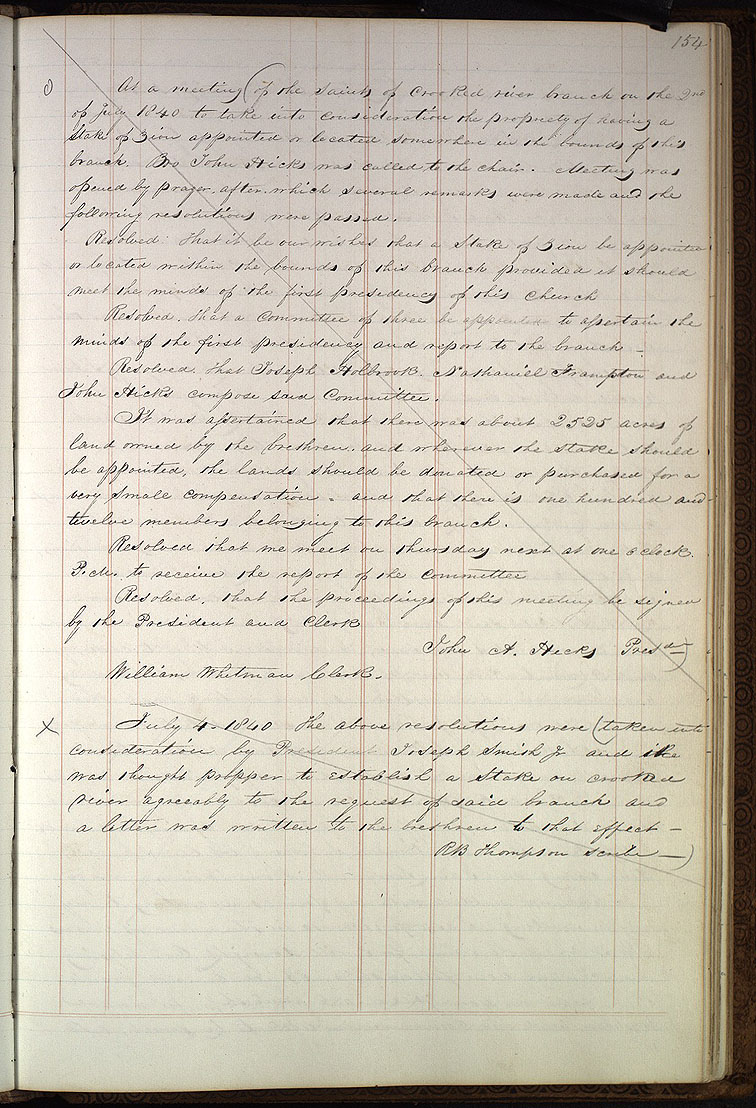 154
At a meeting (of the Saints of Crooked river branch on the 2nd
of July 1840 to take into consideration the propriety of having a
Stake of Zion appointed or located somewhere in the bounds of this
branch. Bro John Hicks was called to the chair. Meeting was
opened by prayer, after which several remarks were made and the
following resolutions were passed.
Resolved: that it be our wishes that a Stake of Zion be appointed
or located within the bounds of this branch provided it should
meet the minds of the first presidency of this Church
Resolved, that a Committee of three be appointed to assertain the
minds of the first presidency and report to the branch –
Resolved, that Joseph Holbrook. Nathaniel Frampton and
John Hicks compose said Committee.
It was assertained that there was about 2525 acres of
land owned by the brethren, and wherever the Stake should
be appointed, the lands should be donated or purchased for a
very small compensation. and that there is one hundred and
twelve members belonging to this branch.
Resolved that we meet on thursday next at one o clock
P.M. to receive the report of the Committee
Resolved, that the proceedings of this meeting be signed
by the President and Clerk
John A. Hicks Presd—)
William Whitman Clerk.
X July 4. 1840 The above resolutions were (taken into
consideration by President Joseph Smith Jr and it
was thought propper to establish a Stake on crooked
river agreeably to the request of said branch and
a letter was written to the brethren to that effect –
RB Thompson scribe —)